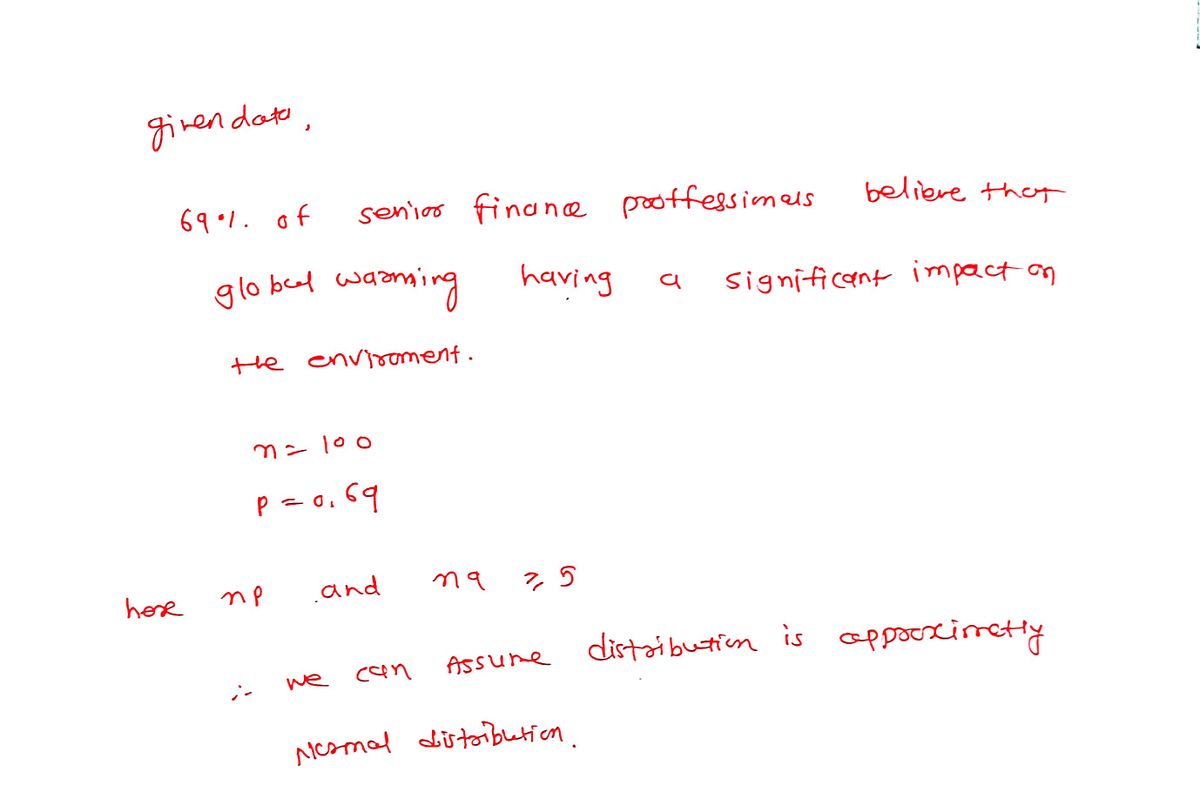 given data,
69%. of senior finance proffessionals believe that
global warming having a significant impact on
the enviroment.
n = 100
p = 0.69
here np and nq ≥ 5
∴ we can Assume distribution is approximatly
Normal distribution.